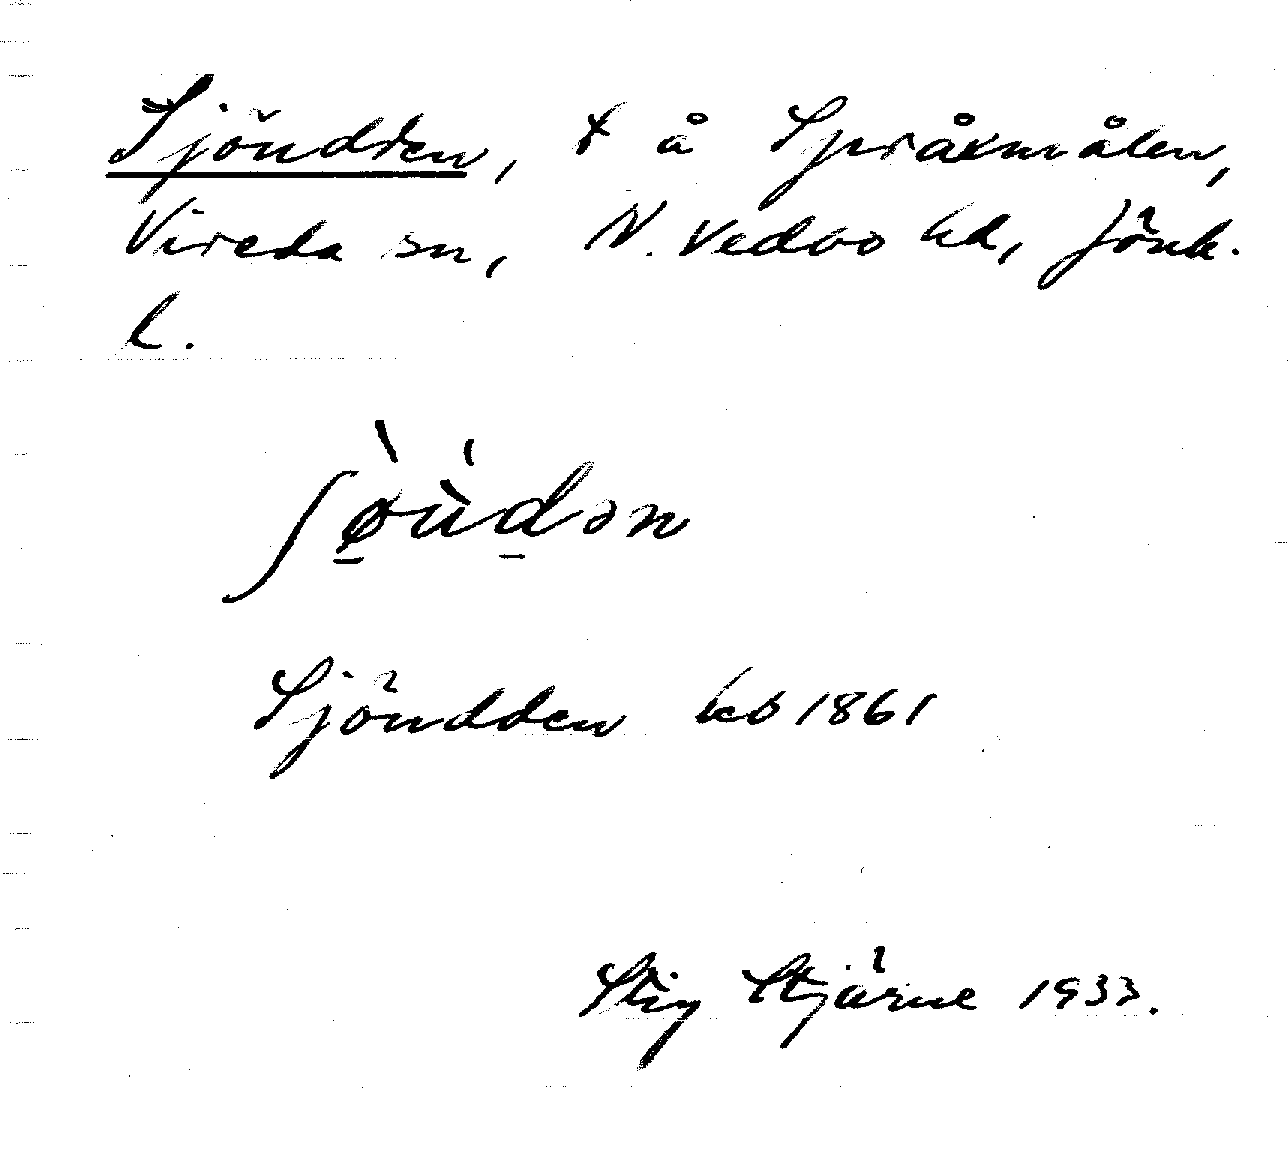 Sjöudden, t å Språkmålen,
Vireda sn, N. Vedbo hd, Jönk.
l.
ʃø̠̀ùd̠ən
Sjöudden kb 1861
Stig Stjärne 1933.